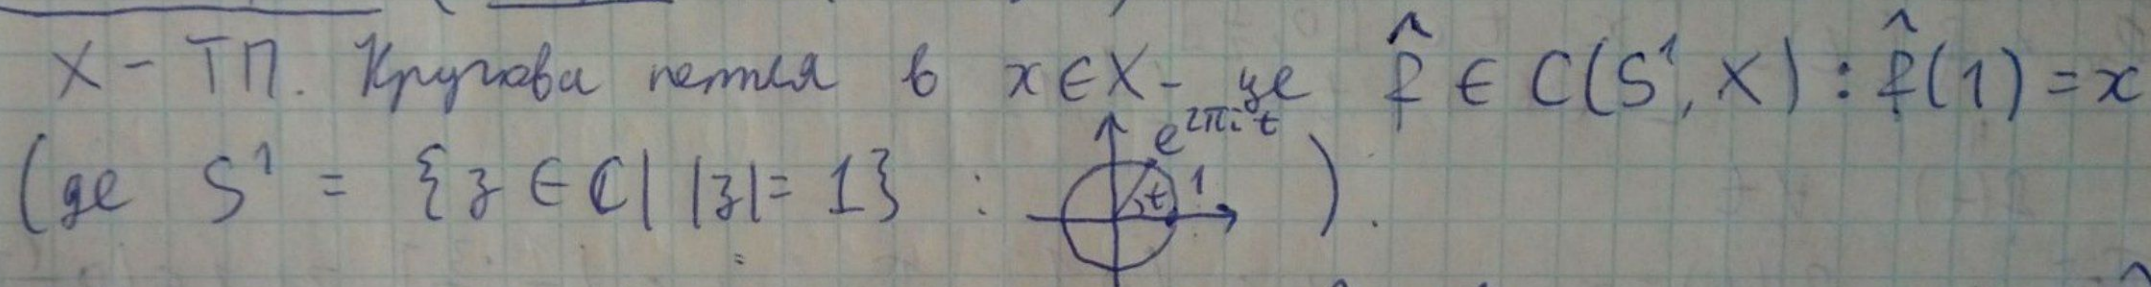 X - ТП. Кругова петля в x ∈ X - це f̂ ∈ C(S¹, X) : f̂(1) = x
(де S¹ = {z ∈ ℂ | |z| = 1} : e^{2πit} t 1 ).